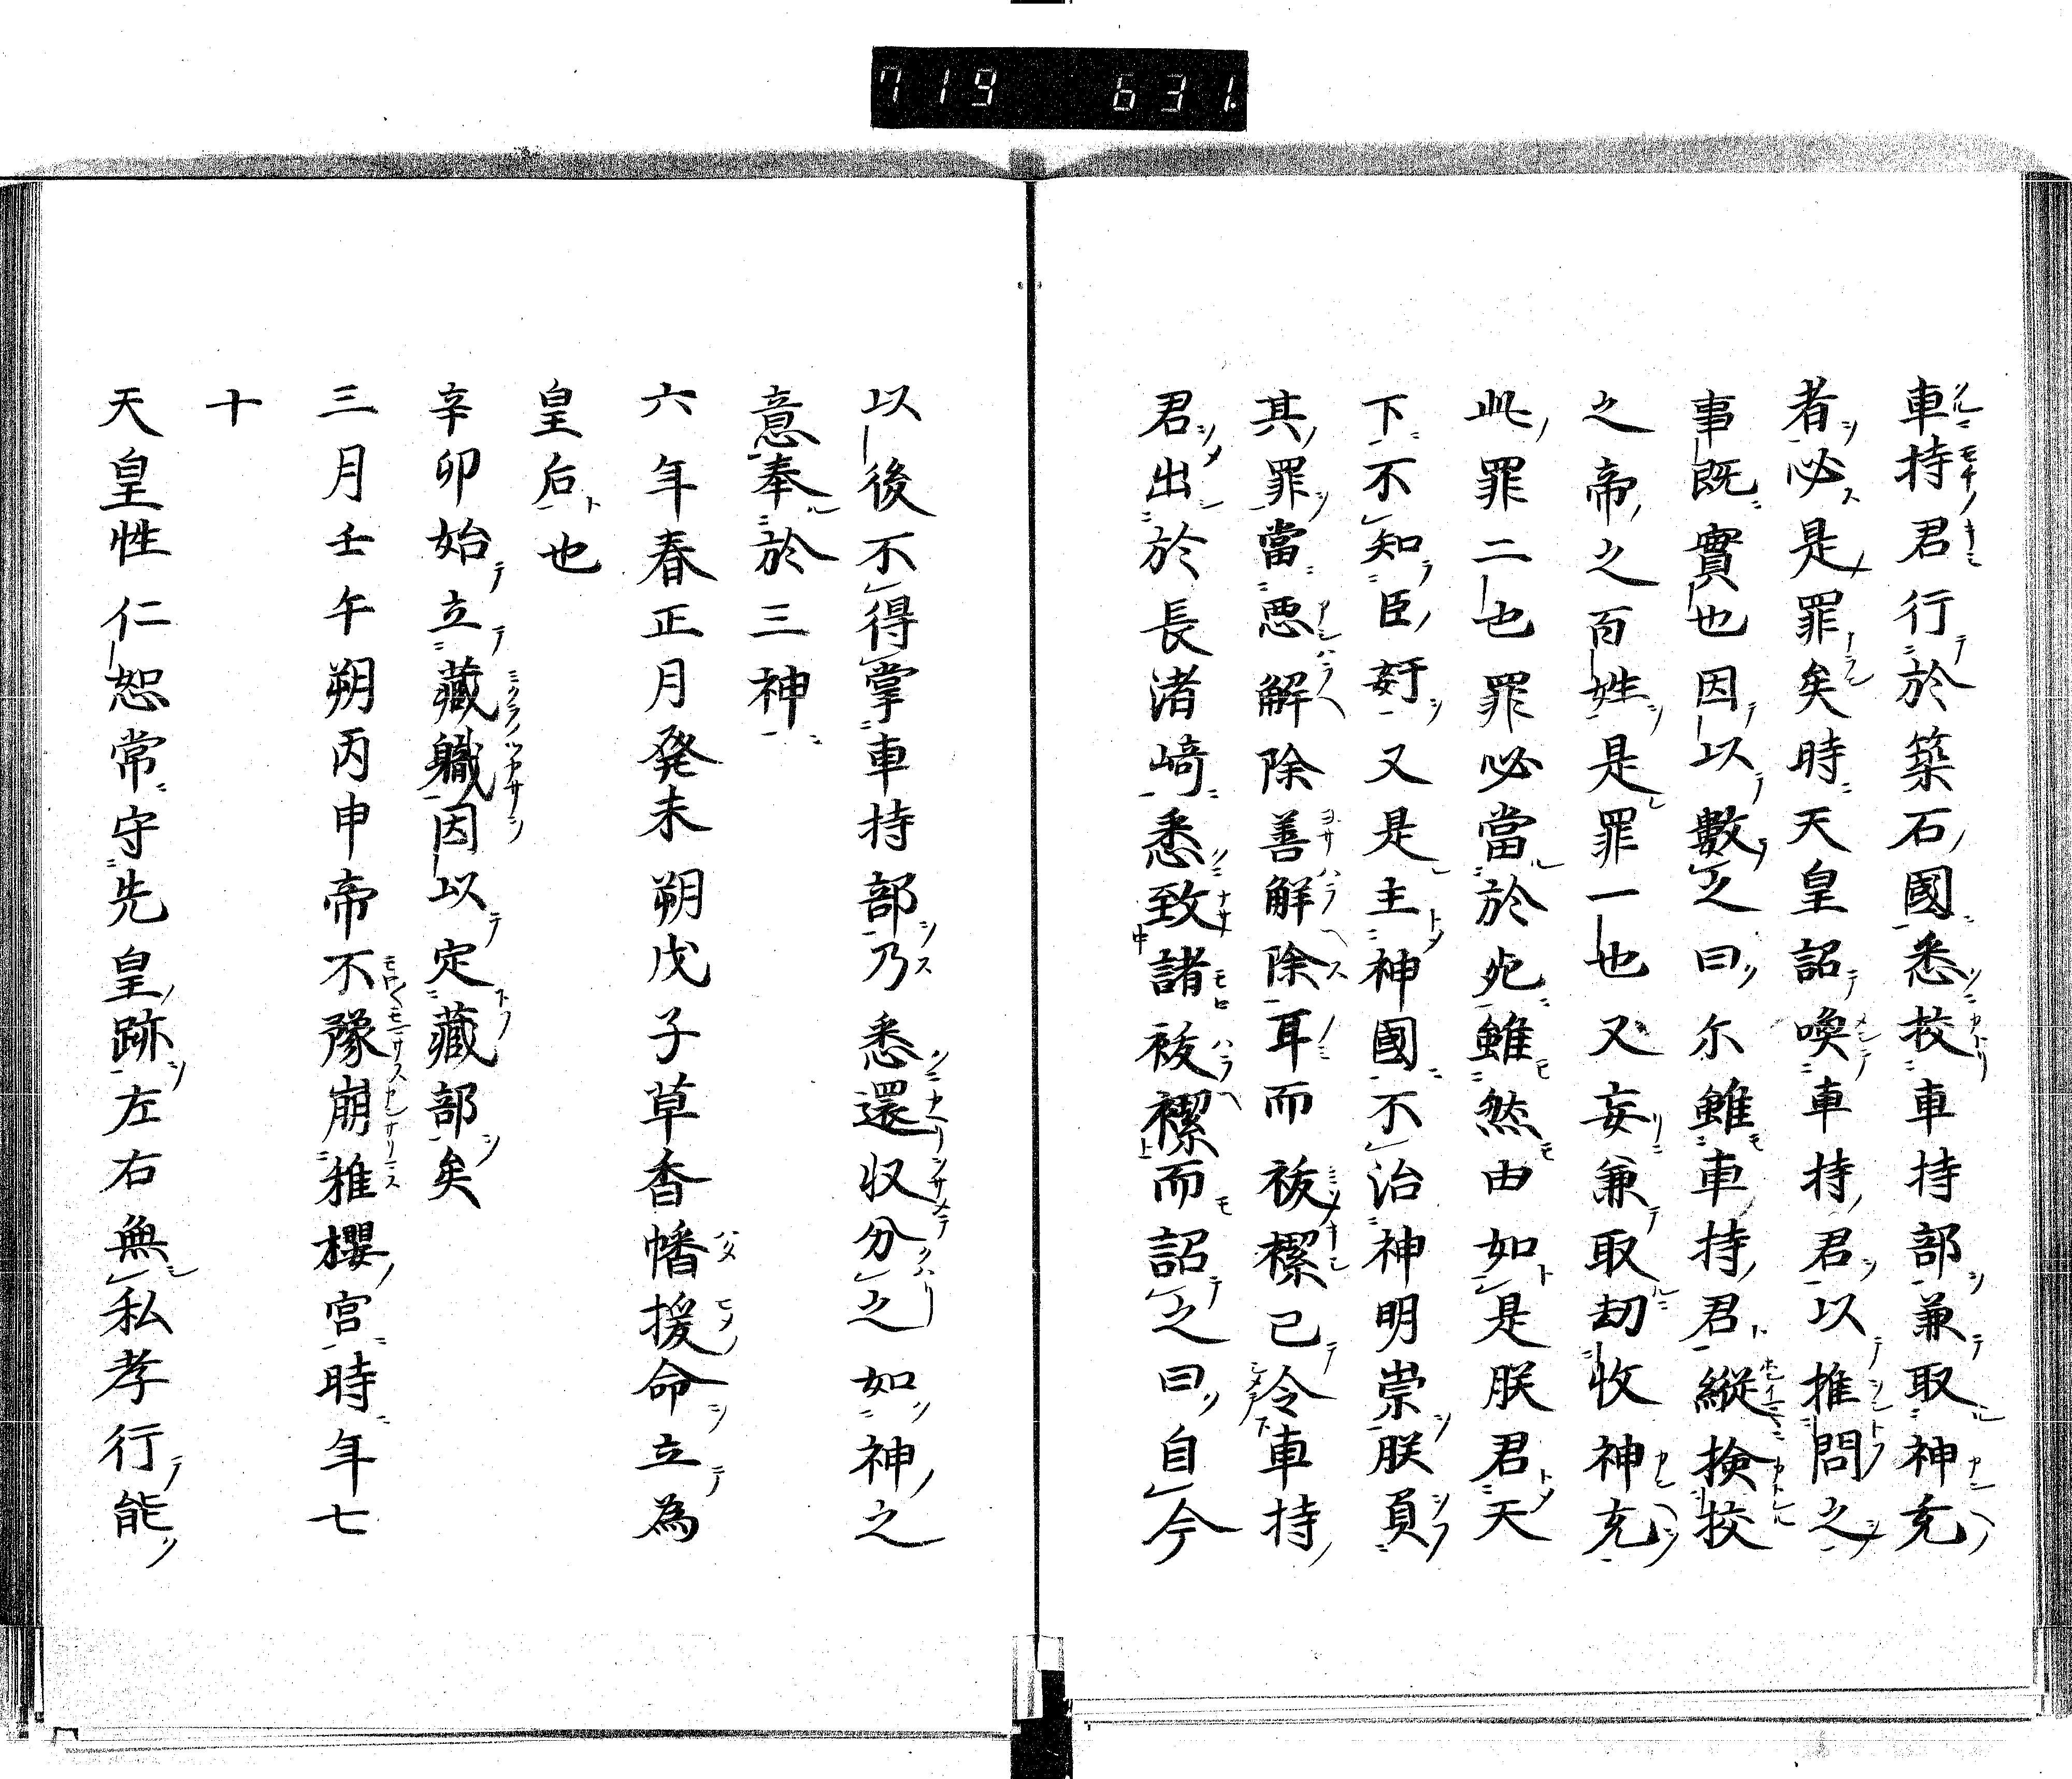 719 631.
車持君行於築石國悉挍車持部兼取神充
者必是罪矣時天皇詔喚車持君以推問之
事既實也因以數之曰尓雖車持君縱撿挍
之帝之百姓是罪一也又妄兼取刧收神充
此罪二也罪必當於死雖然由如是朕君天
下不知臣姧又是主神國不治神明崇朕負
其罪當惡解除善解除耳而祓禊已令車持
君出於長渚﨑悉致諸祓禊而詔之曰自今
以後不得掌車持部乃悉還収分之如神之
意奉於三神
六年春正月癸未朔戊子草香幡援命立為
皇后也
辛卯始立藏軄因以定藏部矣
三月壬午朔丙申帝不豫崩雅櫻宮時年七
十
天皇性仁恕常守先皇跡左右無私孝行能